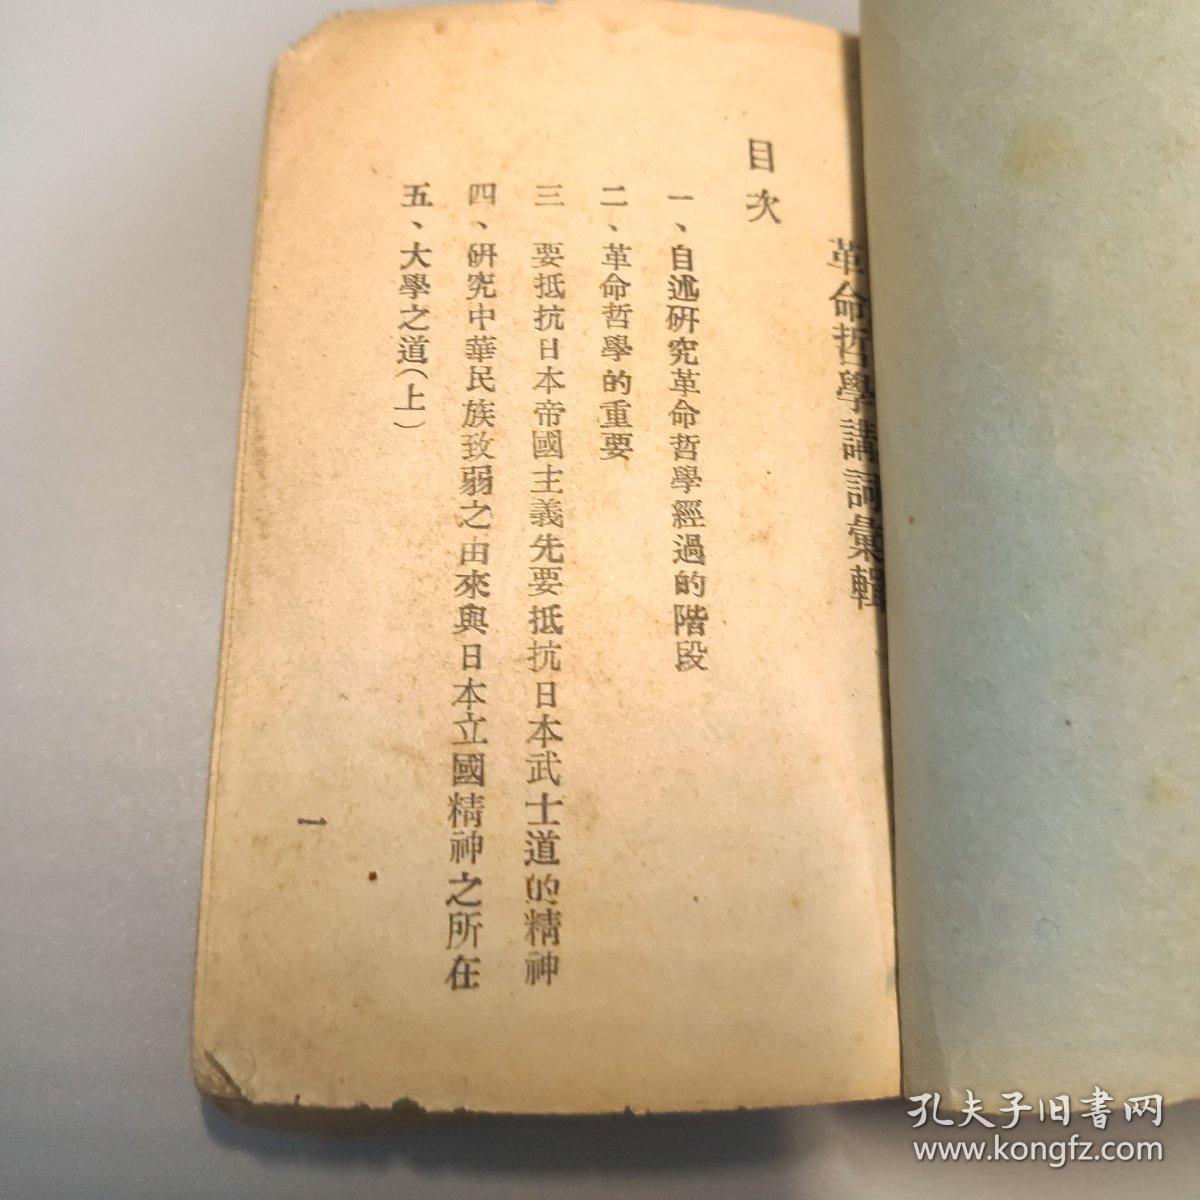 革命哲學講詞彙輯
目次
一、自述硏究革命哲學經過的階段
二、革命哲學的重要
三 要抵抗日本帝國主義先要抵抗日本武士道的精神
四、硏究中華民族致弱之由來與日本立國精神之所在
五、大學之道(上)
一
孔夫子旧书网
www.kongfz.com